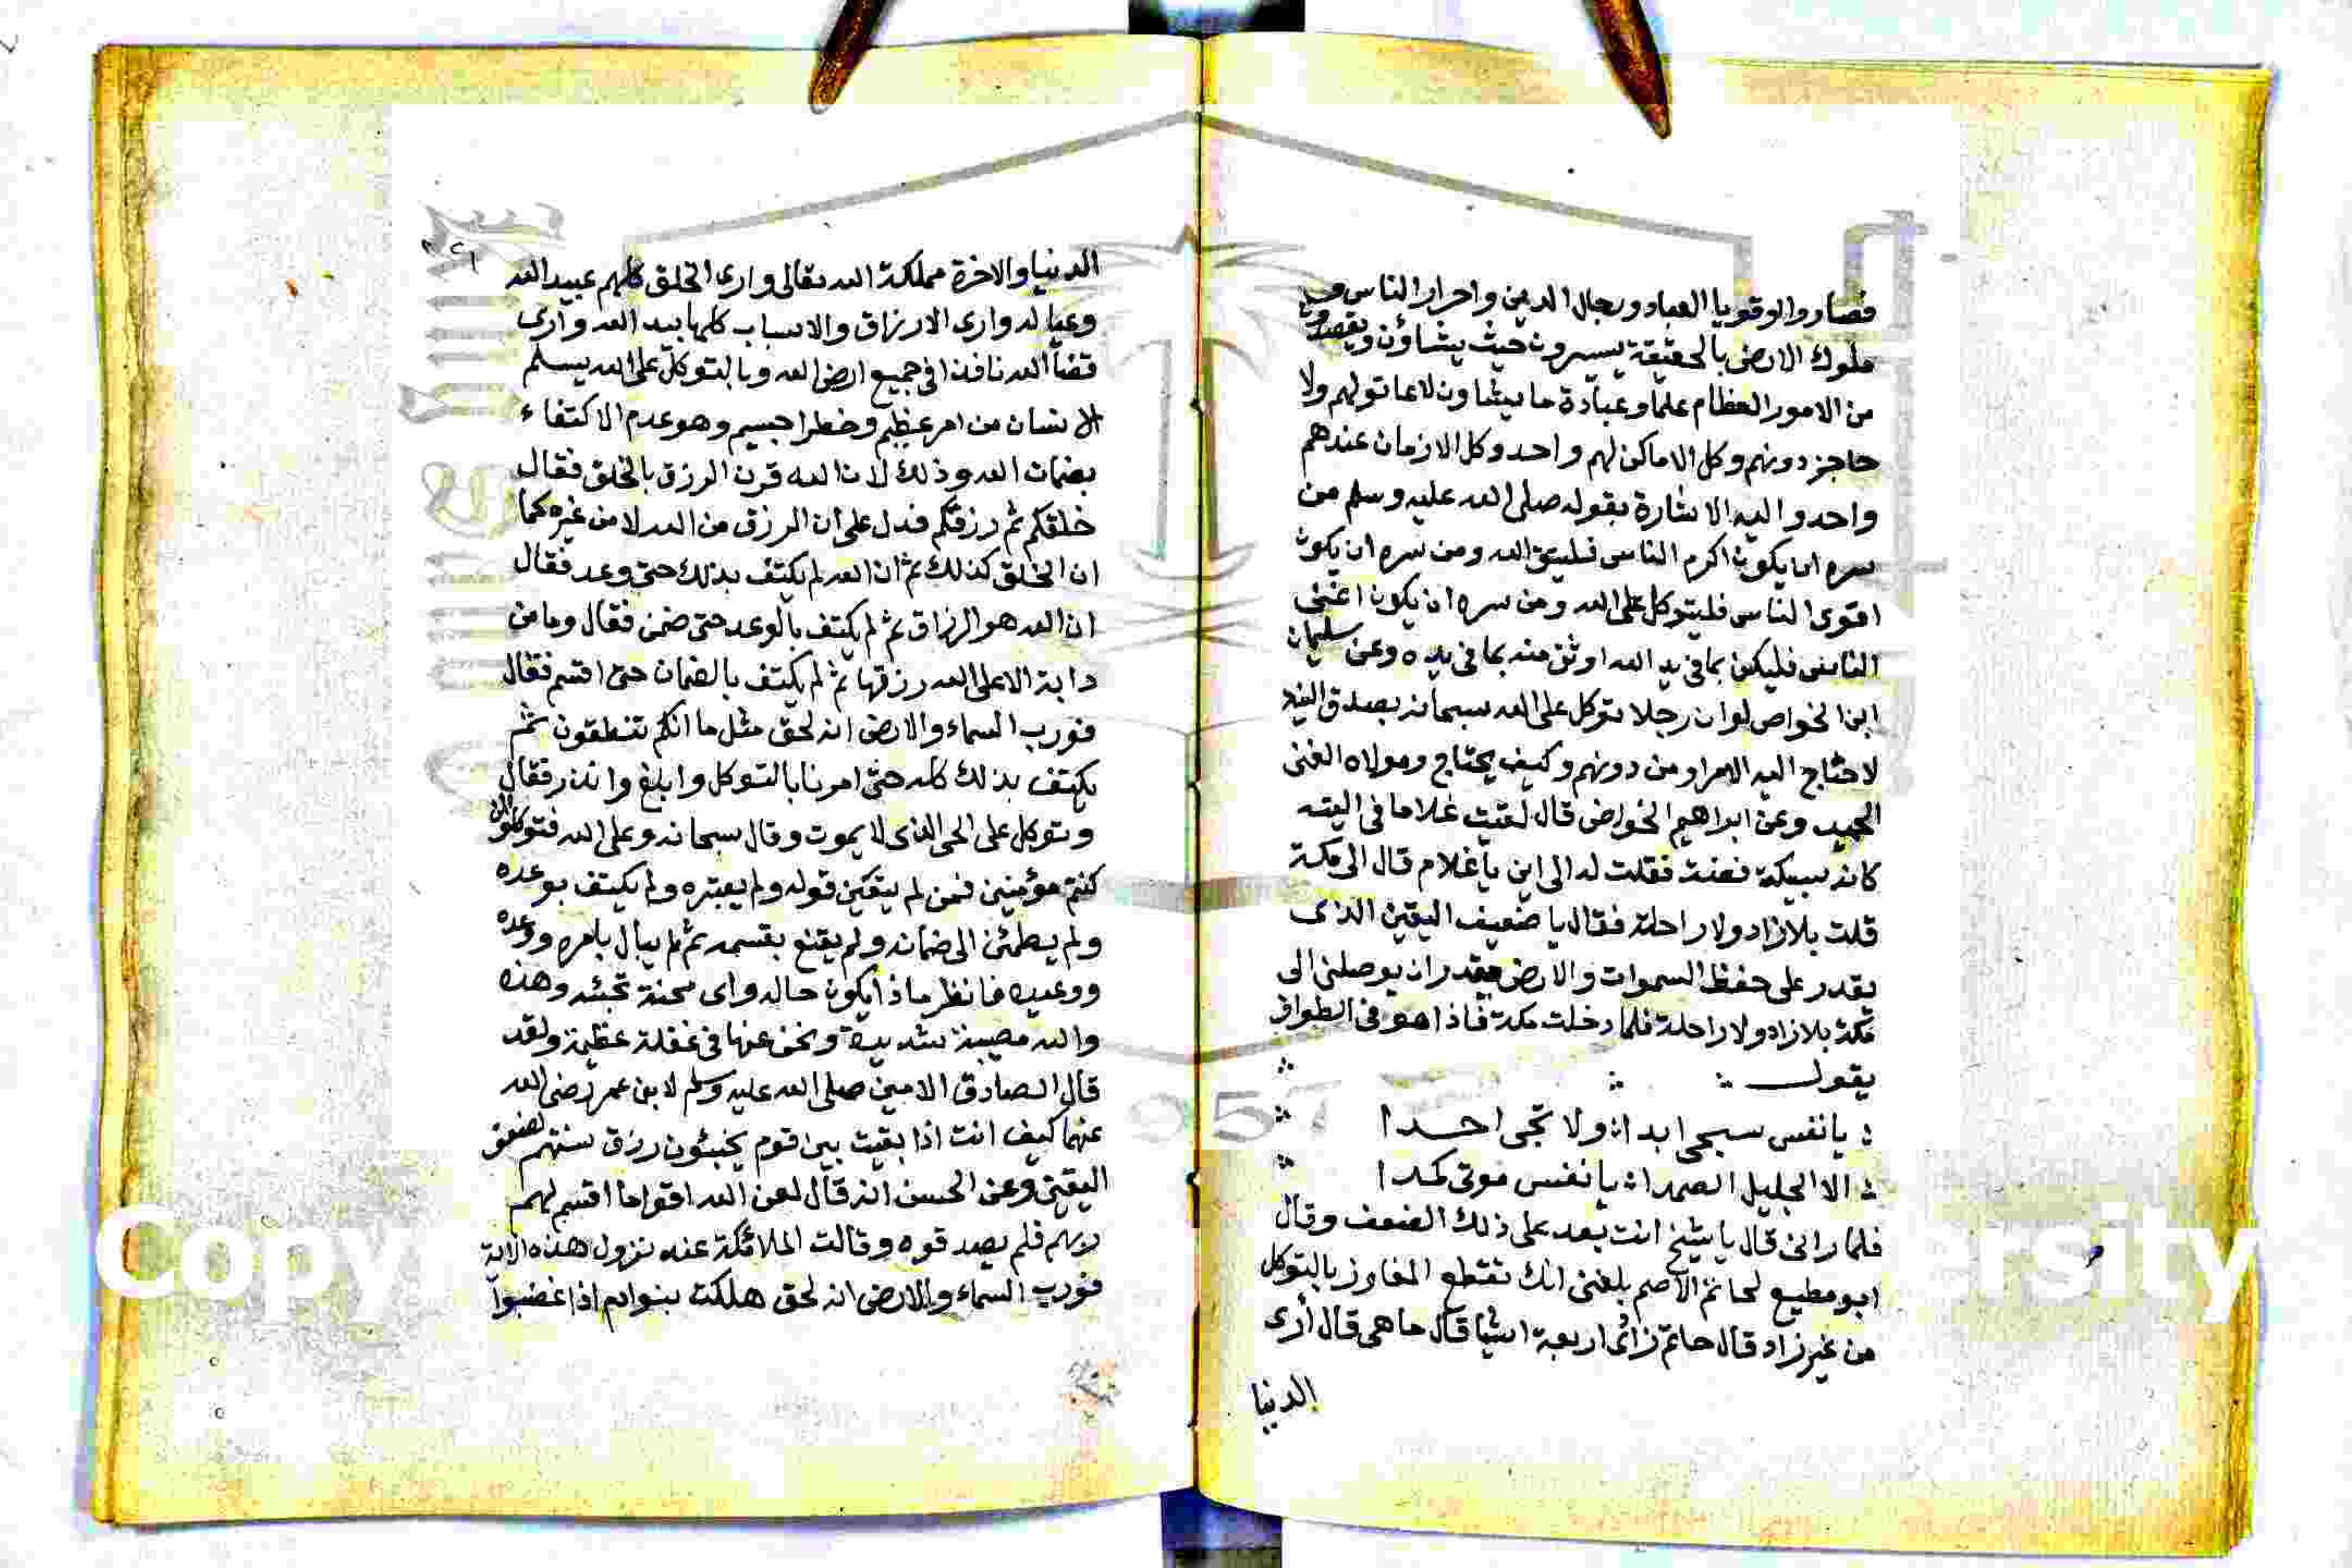 فصاروا اقويا العباد ورجال الدين واحرار الناس و
ملوك الارض بالحقيقة يسيرون حيث يشاؤن ويقصدون
من الامور العظام علما وعبادة ما يشاون لا عاتولهم ولا
حاجز دونهم وكل الاماكن لهم واحد وكل الازمان عندهم
واحد واليه الاشارة بقوله صلى الله عليه وسلم من
سره ان يكون اكرم الناس فليتق الله ومن سره ان يكون
اقوى الناس فليتوكل على الله ومن سره ان يكون اغنى
الناس فليكن بما في يد الله اوثق منه بما في يده وعن سليمان
ابن الخواص لو ان رجلا توكل على الله سبحانه بصدق النية
لاحتاج اليه الامرا ومن دونهم وكيف يحتاج ومولاه الغنى
الحميد وعن ابراهيم الخواص قال لقيت غلاما في التيه
كانه سبيكة فضة فقلت له الى اين يا غلام قال الى مكة
قلت بلا زاد ولا راحلة فقال يا ضعيف اليقين الذى
يقدر على حفظ السموات والارض يقدر ان يوصلني الى
مكة بلا زاد ولا راحلة فلما دخلت مكة فاذا هو في الطواف
يقول
يا نفس سيحى ابدا ولا تحبى احدا
الا الجليل الصمدا يا نفس موتى كمدا
فلما رانى قال يا شيخ انت بعد على ذلك الضعف وقال
ابو مطيع لحاتم الاصم بلغنى انك تقطع المفاوز بالتوكل
من غير زاد قال حاتم زادى اربعة اشيا قال ما هى قال أرى
الدنيا
٢٦
الدنيا والاخرة مملكة الله تعالى وارى الخلق كلهم عبيد الله
وعياله وارى الارزاق والاسباب كلها بيد الله وارى
قضأ الله نافذا فى جميع ارض الله وبالتوكل على الله يسلم
الانسان من امر عظيم وخطر جسيم وهو عدم الاكتفاء
بضمان الله وذلك لان الله قرن الرزق بالخلق فقال
خلقكم ثم رزقكم فدل على ان الرزق من الله لا من غيره كما
ان الخلق كذلك ثم ان الله لم يكتف بذلك حتى وعد فقال
ان الله هو الرزاق ثم لم يكتف بالوعد حتى ضمن فقال وما من
دابة الا على الله رزقها ثم لم يكتف بالضمان حتى اقسم فقال
فورب السماء والارض انه لحق مثل ما انكم تنطقون ثم
يكتف بذلك كله حتى امرنا بالتوكل وابلغ وانذر فقال
وتوكل على الحى الذى لا يموت وقال سبحانه وعلى الله فتوكلوا ان
كنتم مؤمنين فمن لم يتيقن قوله ولم يعتبره ولم يكتف بوعده
ولم يطمئن الى ضمانه ولم يقنع بقسمه ثم لم يبال بامره ووعده
ووعيده فانظر ماذا يكون حاله واى محنة تجئه وهذه
والله مصيبة شديدة ونحن عنها في غفلة عظيمة ولقد
قال الصادق الامين صلى الله عليه وسلم لابن عمر رضى الله
عنهما كيف انت اذا بقيت بين قوم يخبئون رزق سنتهم لضعف
اليقين وعن الحسن انه قال لعن الله اقواما اقسم لهم
ربهم فلم يصدقوه وقالت الملائكة عند نزول هذه الاية
فورب السماء والارض انه لحق هلكت بنوادم اذا غضبوا